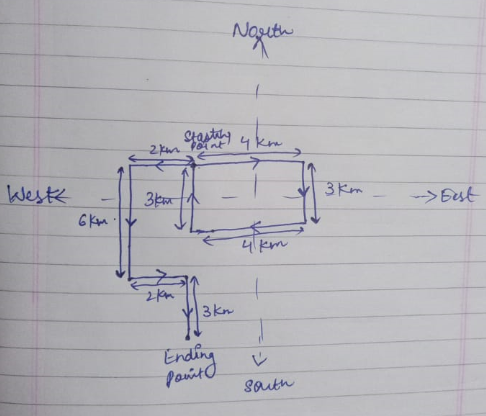 North
Starting
Point
2km
4 Km
3Km
3Km
West
East
6Km
4 Km
2Km
3Km
Ending
Point
South